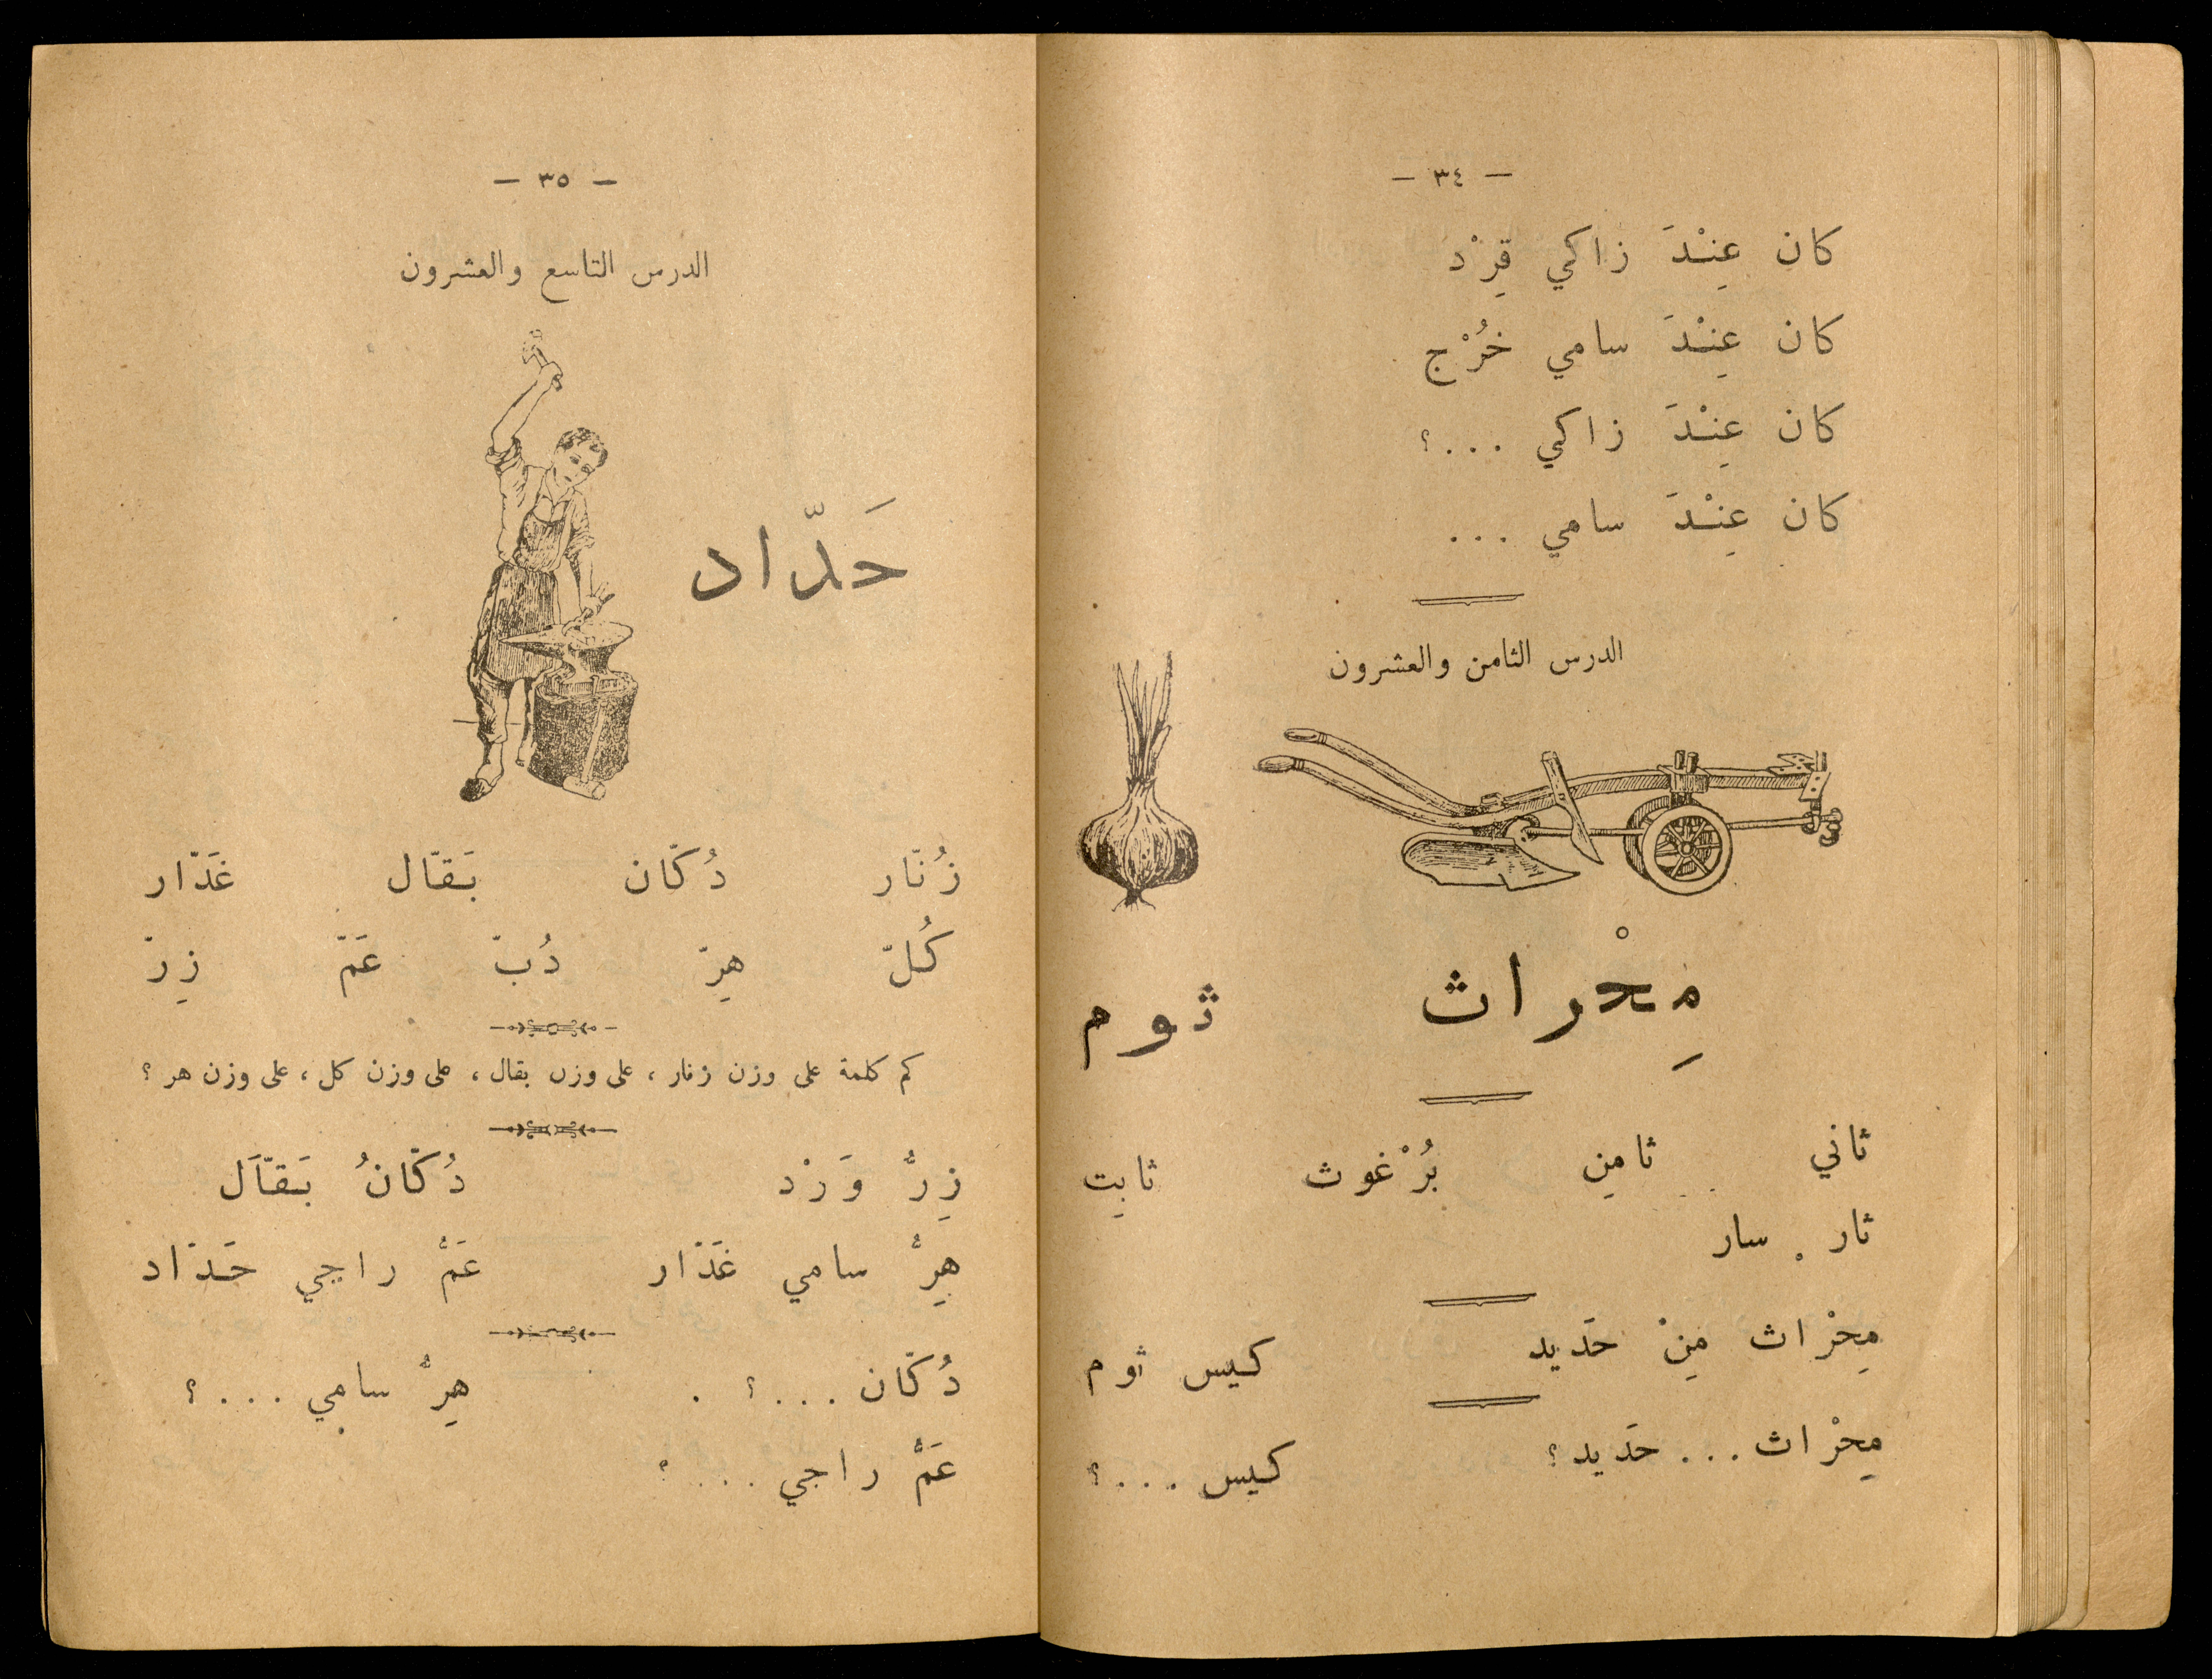 — ٣٤ —
كان عِنْدَ زاكي قِرْد
كان عِنْدَ سامي خُرْج
كان عِنْدَ زاكي ...؟
كان عِنْدَ سامي ...
الدرس الثامن والعشرون
مِحْراث ثوم
ثاني ثامِن بُرْغوث ثابِت
ثار . سار
مِحْراث مِنْ حَديد كيس ثوم
مِحْراث ... حَديد؟ كيس ...؟
— ٣٥ —
الدرس التاسع والعشرون
حَدّاد
زُنّار دُكّان بَقّال غَدّار
كُلّ هِرّ دُبّ عَمّ زِرّ
كم كلمة على وزن زنار، على وزن بقال، على وزن كل، على وزن هر؟
زِرُّ وَرْد دُكّانُ بَقّاَل
هِرُّ سامي غَدّار عَمُّ راجي حَدّاد
دُكّان ...؟ . هِرُّ سامي ...؟
عَمُّ راجي ...؟